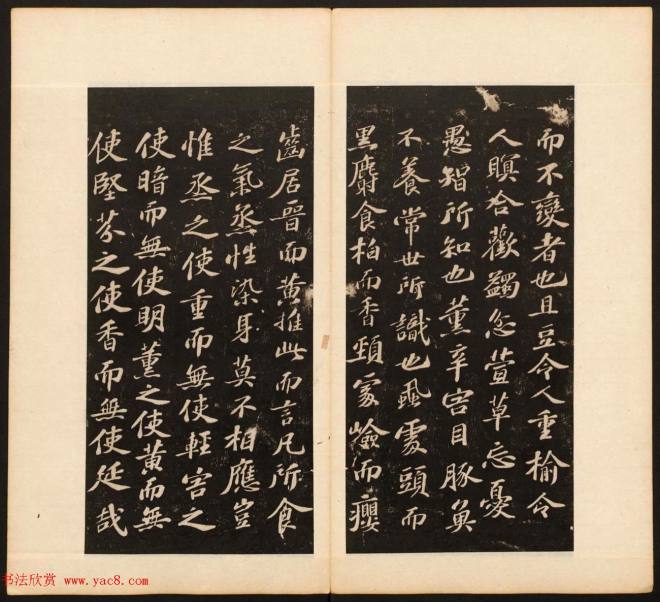 而不變者也且豆令人重榆令
人瞑合歡蠲忿萱草忘憂
愚智所知也薰辛害目豚魚
不養常世所識也虱處頭而
黑麝食柏而香頸處險而癭
齒居晉而黃推此而言凡所食
之氣蒸性染身莫不相應豈
惟蒸之使重而無使輕害之
使暗而無使明薰之使黃而無
使堅芬之使香而無使延哉
书法欣赏 www.yac8.com